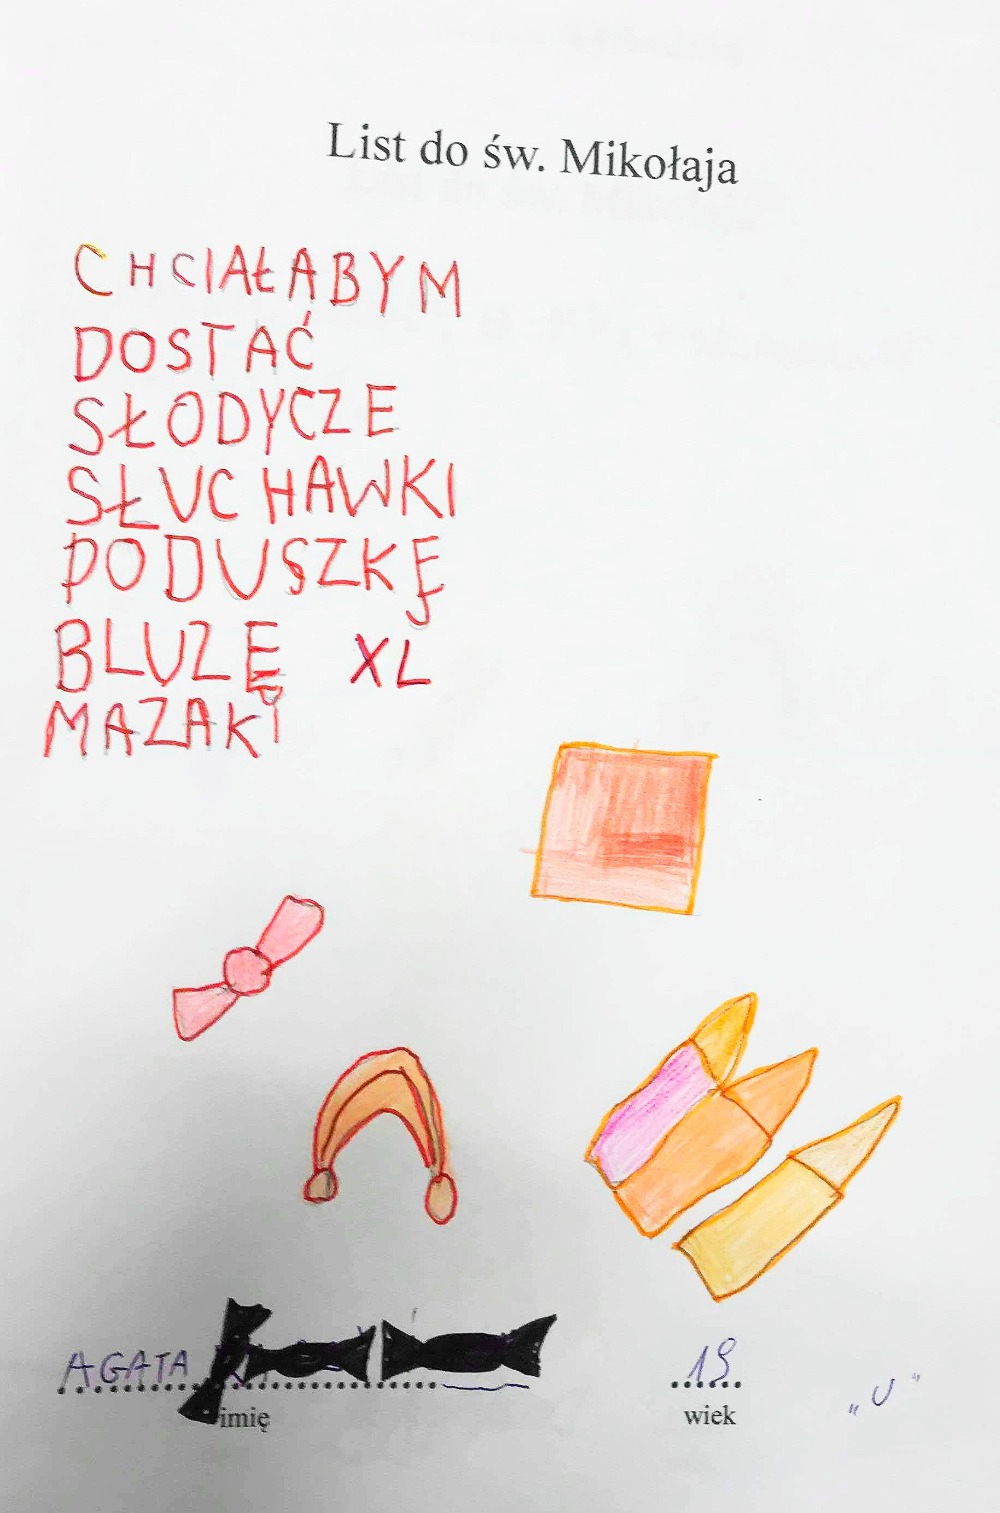 List do św. Mikołaja
CHCIAŁABYM
DOSTAĆ
SŁODYCZE
SŁUCHAWKI
PODUSZKĘ
BLUZĘ XL
MAZAKI
AGATA
imię
19
wiek
„U"